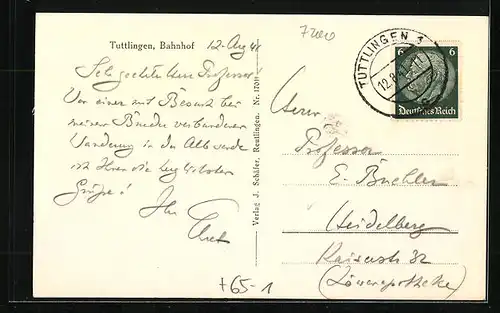 Tuttlingen, Bahnhof 12. Aug 41
Sehr geehrter Herr Professor!
Von einer mit Besuch bei
meinem Bruder verbundenen
Wanderung in der Alb sende
ich Ihnen die herzlichsten
Grüsse!
Ihr
Verlag J. Schäfer, Reutlingen. Nr. 17031
TUTTLINGEN 1
12.8.41
6 6
Deutsches Reich
Herrn
Professor
E. Buchler
Heidelberg
Kaiserstr 32
(Löwenapotheke)
+65-1